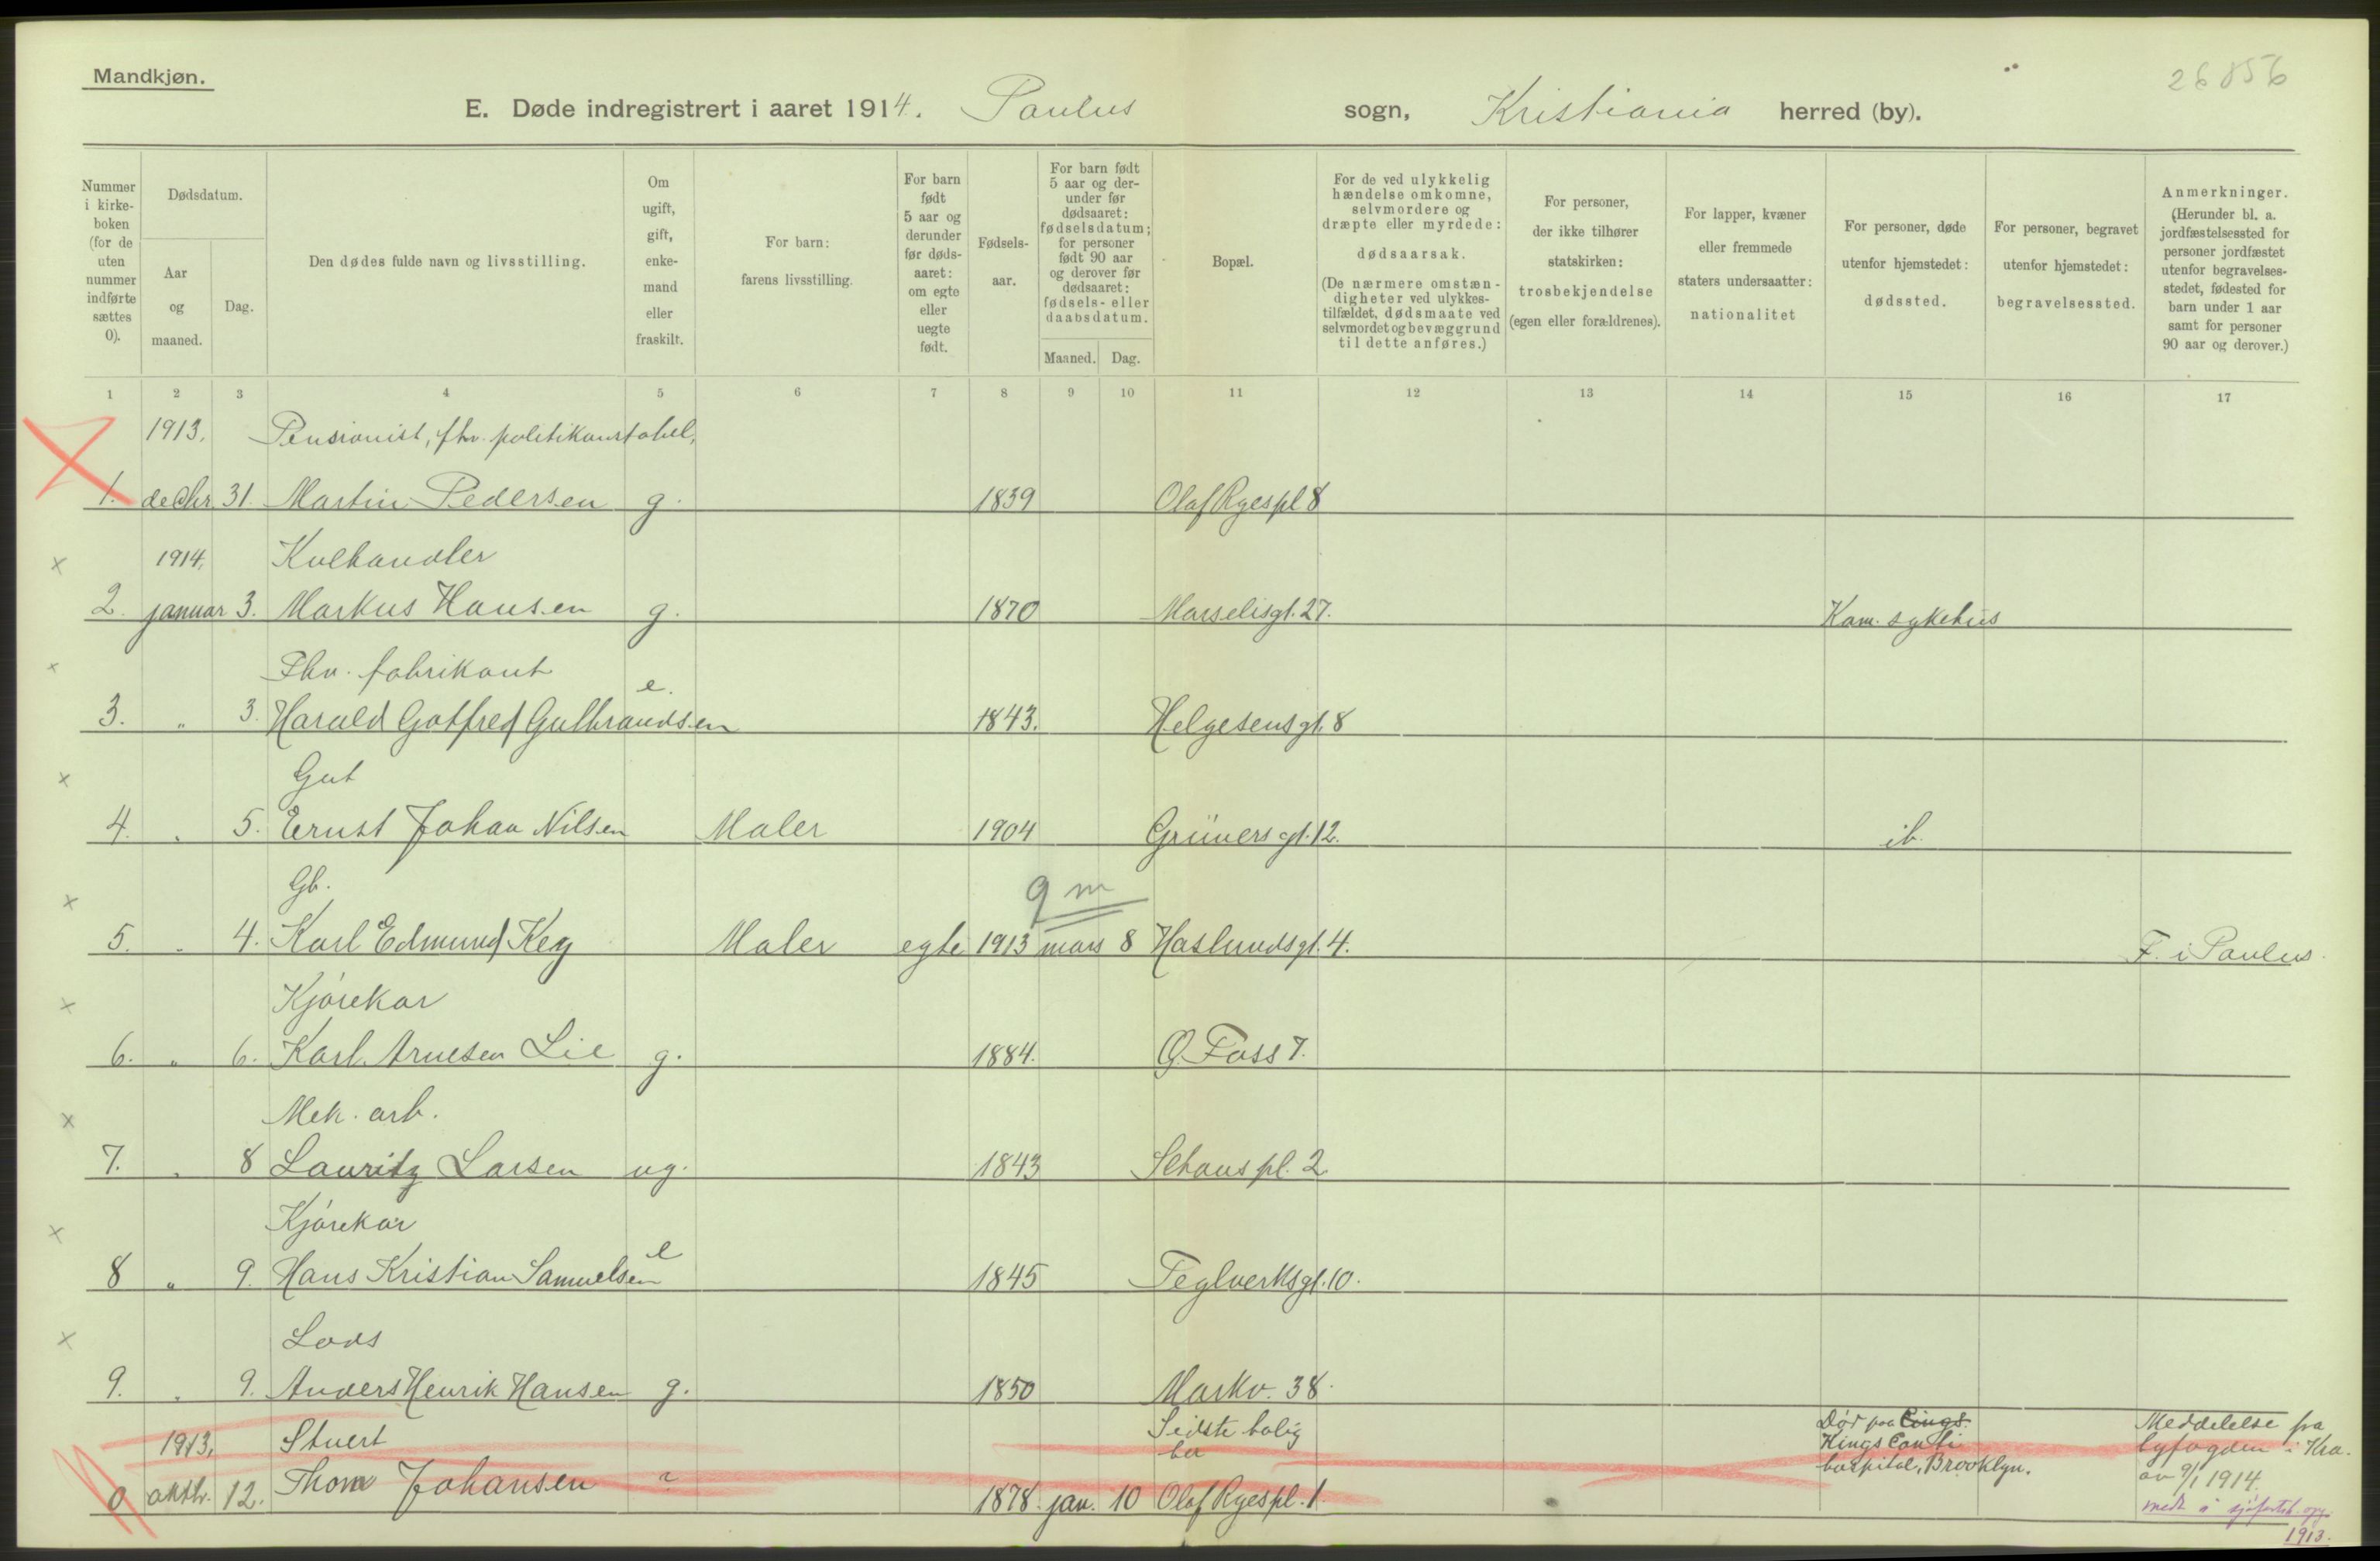 Mandkjøn.
26856
E. Døde indregistrert i aaret 1914. Paulus sogn, Kristiania herred (by).
Nummer i kirke-boken (for de uten nummer indførte sættes 0).
Dødsdatum.
Aar og maaned.
Dag.
Den dødes fulde navn og livsstilling.
Om ugift, gift, enke-mand eller fraskilt.
For barn: farens livsstilling.
For barn født 5 aar og derunder før døds-aaret: om egte eller uegte født.
Fødsels-aar.
For barn født 5 aar og der-under før dødsaaret: fødselsdatum; for personer født 90 aar og derover før dødsaaret: fødsels- eller daabsdatum.
Maaned. Dag.
Bopæl.
For de ved ulykkelig hændelse omkomne, selvmordere og dræpte eller myrdede: dødsaarsak. (De nærmere omstæn-digheter ved ulykkes-tilfældet, dødsmaate ved selvmordet og bevæggrund til dette anføres.)
For personer, der ikke tilhører statskirken: trosbekjendelse (egen eller forældrenes).
For lapper, kvæner eller fremmede staters undersaatter: nationalitet
For personer, døde utenfor hjemstedet: dødssted.
For personer, begravet utenfor hjemstedet: begravelsessted.
Anmerkninger. (Herunder bl. a. jordfæstelsessted for personer jordfæstet utenfor begravelses-stedet, fødested for barn under 1 aar samt for personer 90 aar og derover.)
1 2 3 4 5 6 7 8 9 10 11 12 13 14 15 16 17
1913. Pensionist, fhv. politikonstabel,
1. decbr. 31. Martin Pedersen g. 1839 Olaf Ryespl 8
1914. Kulhandler
2. januar 3. Markus Hansen g. 1870 Marselisgt. 27. Kom. sykehus
Fhv. fabrikant
3. " 3. Harald Gotfred Gulbrandsen e. 1843. Helgesensgt. 8
Gut
4. " 5. Ernst Johan Nilsen Maler 1904 Grünersgt. 12. ib.
Gb. 9 m
5. " 4. Karl Edmund Key Maler egte 1913 mars 8 Haslundsgt. 4. F. i Paulus.
Kjørekar
6. " 6. Karl Arnesen Lie g. 1884. O. Foss 7.
Mek. arb.
7. " 8 Lauritz Larsen ug. 1843 Schouspl. 2
Kjørekar
8 " 9. Hans Kristian Samuelsen e 1845 Teglverksgt. 10.
Lods
9. " 9. Anders Henrik Hansen g. 1850 Markv. 38.
1913. Stuert Sidste bolig her Død paa Cings Kings Conti hospital, Brooklyn. Meddelelse fra byfogden i Kra. av 9/1 1914.
0 oktbr. 12. Thom Johansen ? 1878. jan. 10 Olaf Ryespl. 1.
medt i sjøfartsb. opg. 1913.